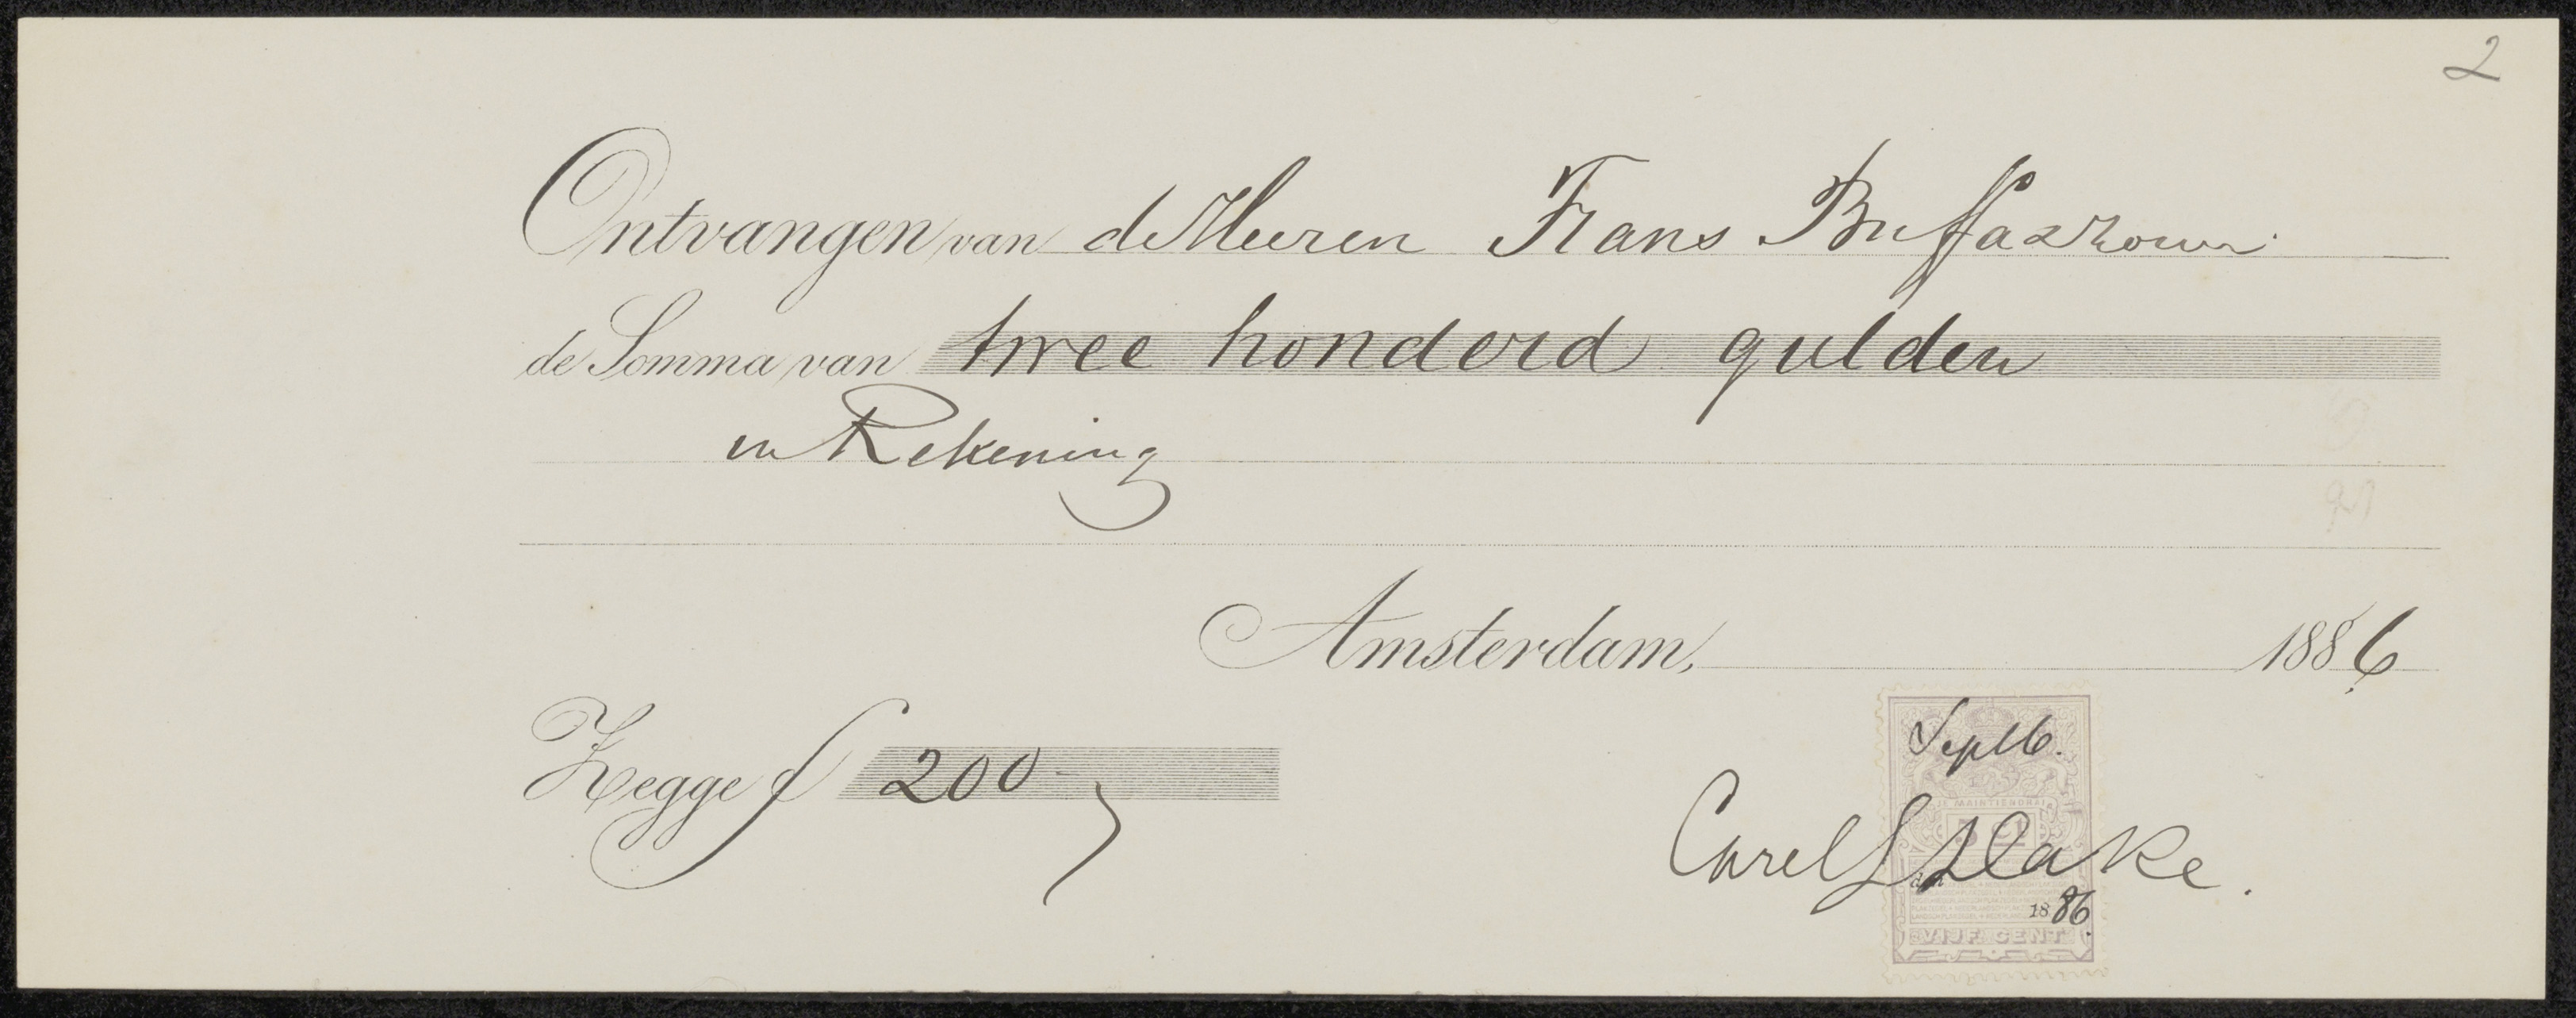 2
Ontvangen van de Heeren Frans Buffa & Zonen
de Somma van twee honderd gulden
in Rekening
Amsterdam, 1886
Sept 16.
Zegge f 200-
JE MAINTIENDRAI
5 Ct
Carel L Dake.
den
1886.
VIJF CENT